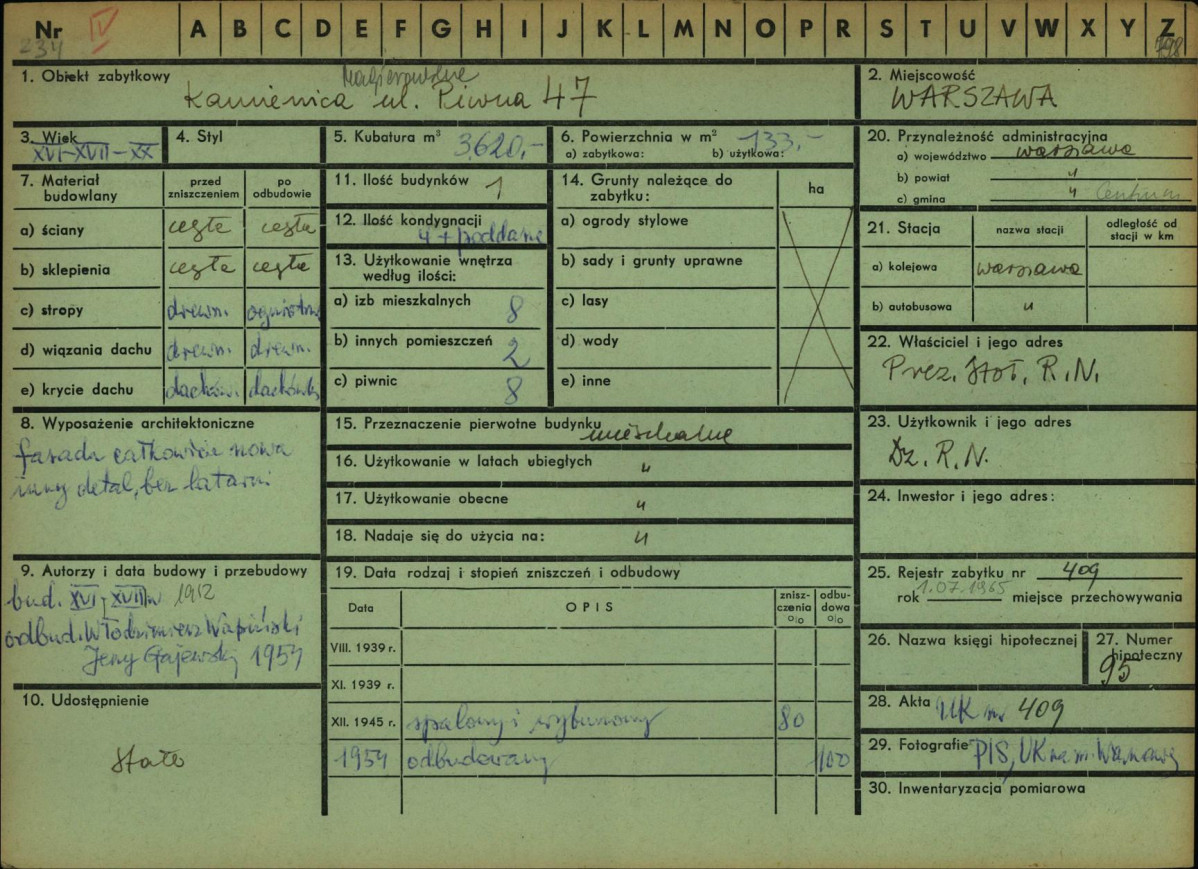 Nr IV A B C D E F G H I J K L M N O P R S T U V W X Y Z
234 798
1. Obiekt zabytkowy
Kamienica ul. Piwna 47
2. Miejscowość
WARSZAWA
3. Wiek
XVI-XVII-XX
4. Styl
5. Kubatura m³ 3620,-
6. Powierzchnia w m² 133.-
a) zabytkowa: b) użytkowa:
20. Przynależność administracyjna
a) województwo warszawa
b) powiat "
c) gmina " Centrum
7. Materiał budowlany
przed zniszczeniem
po odbudowie
a) ściany cegła cegła
b) sklepienia cegła cegła
c) stropy drewn. ogniotrw
d) wiązania dachu drewn. drewn.
e) krycie dachu dachówk. dachówk
11. Ilość budynków 1
12. Ilość kondygnacji
4 + poddasze
13. Użytkowanie wnętrza
według ilości:
a) izb mieszkalnych 8
b) innych pomieszczeń 2
c) piwnic 8
14. Grunty należące do
zabytku:
ha
a) ogrody stylowe
b) sady i grunty uprawne
c) lasy
d) wody
e) inne
21. Stacja
nazwa stacji
odległość od
stacji w km
a) kolejowa warszawa
b) autobusowa "
22. Właściciel i jego adres
Prez. Stoł. R.N.
8. Wyposażenie architektoniczne
fasada całkowicie nowa
inny detal, bez latarni
15. Przeznaczenie pierwotne budynku mieszkalne
16. Użytkowanie w latach ubiegłych "
17. Użytkowanie obecne "
18. Nadaje się do użycia na: "
23. Użytkownik i jego adres
Dz. R.N.
24. Inwestor i jego adres:
9. Autorzy i data budowy i przebudowy
bud. XVI-XVII w 1912
odbud. Włodzimierz Wapiński
Jerzy Gajewski 1954
10. Udostępnienie
stałe
19. Data rodzaj i stopień zniszczeń i odbudowy
Data
OPIS
znisz-
czenia
o|o
odbu-
dowa
o|o
VIII. 1939 r.
XI. 1939 r.
XII. 1945 r. spalony i wyburzony 80
1954 odbudowany 100
25. Rejestr zabytku nr 409
rok 1.07.1965 miejsce przechowywania
26. Nazwa księgi hipotecznej
27. Numer
hipoteczny
95
28. Akta UK nr 409
29. Fotografie PIS, UK na m. Warszawę
30. Inwentaryzacja pomiarowa